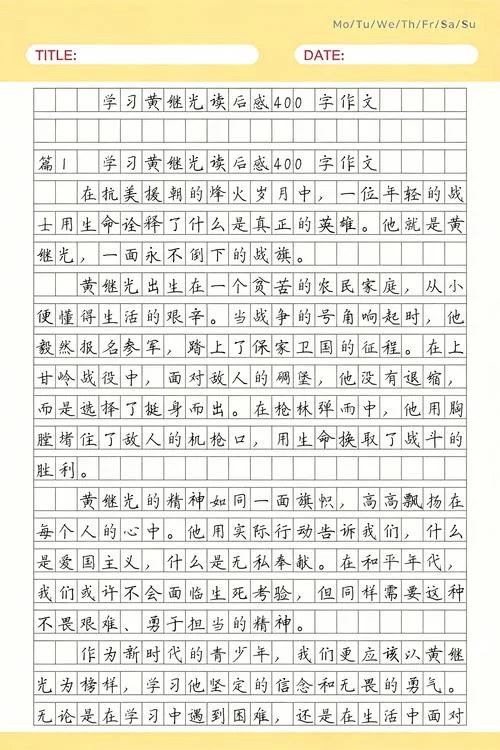 Mo/Tu/We/Th/Fr/Sa/Su
TITLE: DATE:
学习黄继光读后感400字作文
篇1 学习黄继光读后感400字作文
在抗美援朝的烽火岁月中，一位年轻的战
士用生命诠释了什么是真正的英雄。他就是黄
继光，一面永不倒下的战旗。
黄继光出生在一个贫苦的农民家庭，从小
便懂得生活的艰辛。当战争的号角响起时，他
毅然报名参军，踏上了保家卫国的征程。在上
甘岭战役中，面对敌人的碉堡，他没有退缩，
而是选择了挺身而出。在枪林弹雨中，他用胸
膛堵住了敌人的机枪口，用生命换取了战斗的
胜利。
黄继光的精神如同一面旗帜，高高飘扬在
每个人的心中。他用实际行动告诉我们，什么
是爱国主义，什么是无私奉献。在和平年代，
我们或许不会面临生死考验，但同样需要这种
不畏艰难、勇于担当的精神。
作为新时代的青少年，我们更应该以黄继
光为榜样，学习他坚定的信念和无畏的勇气。
无论是在学习中遇到困难，还是在生活中面对